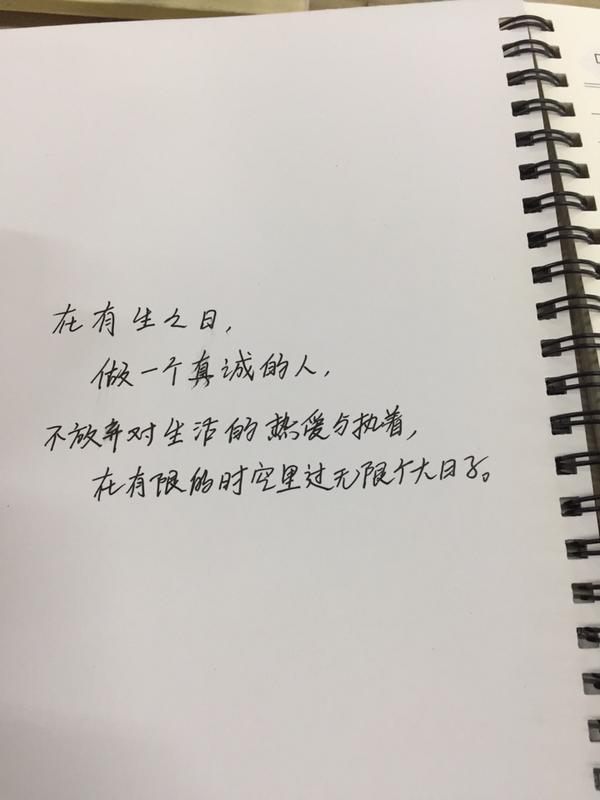 在有生之日,
做一个真诚的人,
不放弃对生活的热爱与执着,
在有限的时空里过无限个大日子。